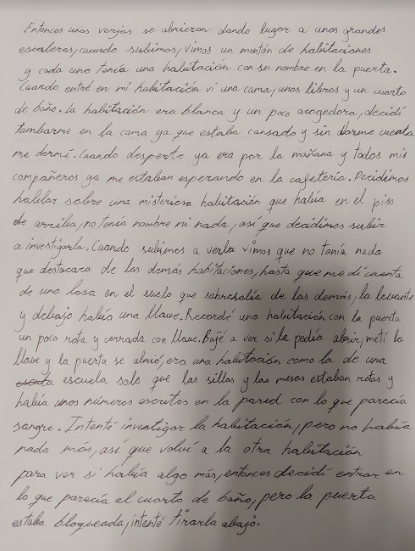 Entonces unas verjas se abrieron dando lugar a unas grandes
escaleras, cuando subimos, vimos un montón de habitaciones
y cada uno tenía una habitación con su nombre en la puerta.
Cuando entré en mi habitación vi una cama, unos libros y un cuarto
de baño. La habitación era blanca y un poco acogedora, decidí
tumbarme en la cama ya que estaba cansado y sin darme cuenta
me dormí. Cuando desperté ya era por la mañana y todos mis
compañeros ya me estaban esperando en la cafetería. Decidimos
hablar sobre una misteriosa habitación que había en el piso
de arriba, no tenía nombre ni nada, así que decidimos subir
a investigarla. Cuando subimos a verla vimos que no tanía nada
que destacara de las demás habitaciones, hasta que me di cuenta
de una losa en el suelo que sobresalía de las demás, la levante
y debajo había una llave. Recordé una habitación con la puerta
un poco rota y cerrada con llave. Bajé a ver si la podía abrir, metí la
llave y la puerta se abrió, era una habitación como la de una
escuela solo que las sillas y las mesas estaban rotas y
había unos números escritos en la pared con lo que parecía
sangre. Intenté investigar la habitación, pero no había
nada más, así que volví a la otra habitación
para ver si había algo más, entonces decidí entrar en
lo que parecía el cuarto de baño, pero la puerta
estaba bloqueada, intenté tirarla abajo.